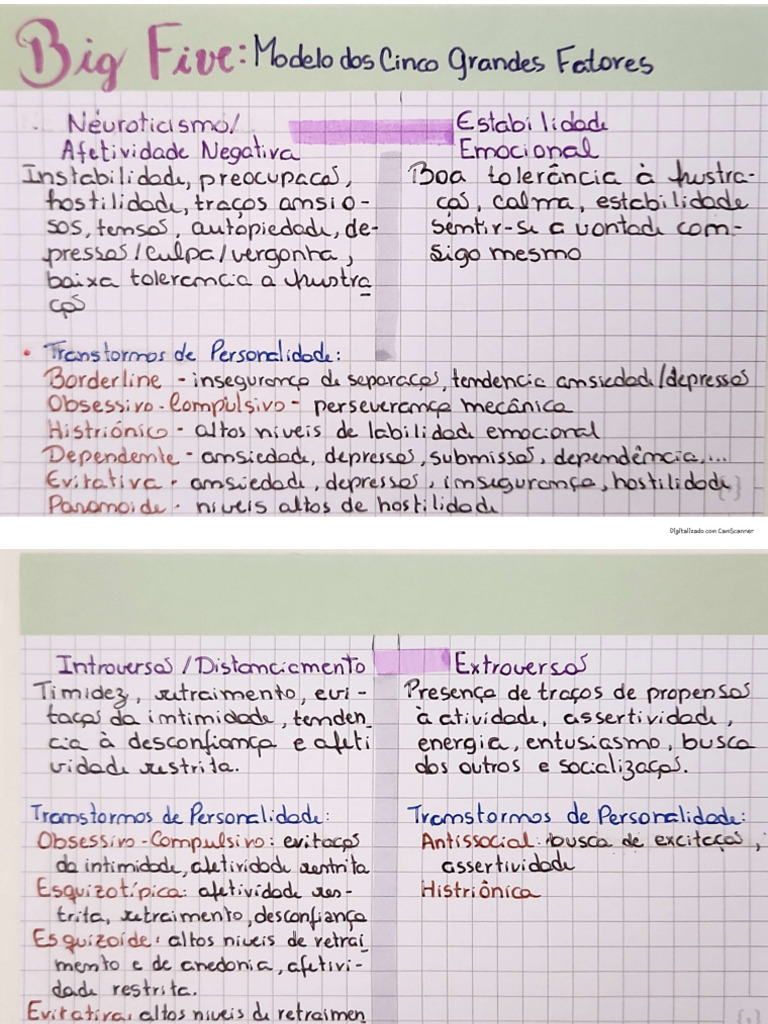 Big Five: Modelo dos Cinco Grandes Fatores
Neuroticismo/
Afetividade Negativa
Instabilidade, preocupação,
hostilidade, traços ansio-
sos, tensos, autopiedade, de-
pressão/culpa/vergonha,
baixa tolerancia a frustra
ção
Estabilidade
Emocional
Boa tolerância à frustra-
ção, calma, estabilidade
sentir-se a vontade con-
sigo mesmo
• Transtornos de Personalidade:
Borderline - insegurança de separação, tendencia ansiedade/depressão
Obsessivo-Compulsivo - perseverança mecânica
Histriônico - altos níveis de labilidade emocional
Dependente - ansiedade, depressão, submissão, dependência,...
Evitativa - ansiedade, depressão, insegurança, hostilidade
Paranoide - níveis altos de hostilidade
Digitalizado com CamScanner
Introversão/Distanciamento
Timidez, retraimento, evi-
tação da intimidade, tenden
cia à desconfiança e afeti
vidade restrita.
Transtornos de Personalidade:
Obsessivo-Compulsivo: evitação
da intimidade, afetividade restrita
Esquizotípica: afetividade res-
trita, retraimento, desconfiança
Esquizoide: altos níveis de retrai
mento e de anedonia, afetivi-
dade restrita.
Evitativa: altos níveis de retraimen
Extroversão
Presença de traços de propensão
à atividade, assertividade,
energia, entusiasmo, busca
dos outros e socialização.
Transtornos de Personalidade:
Antissocial: busca de excitação,
assertividade
Histriônica